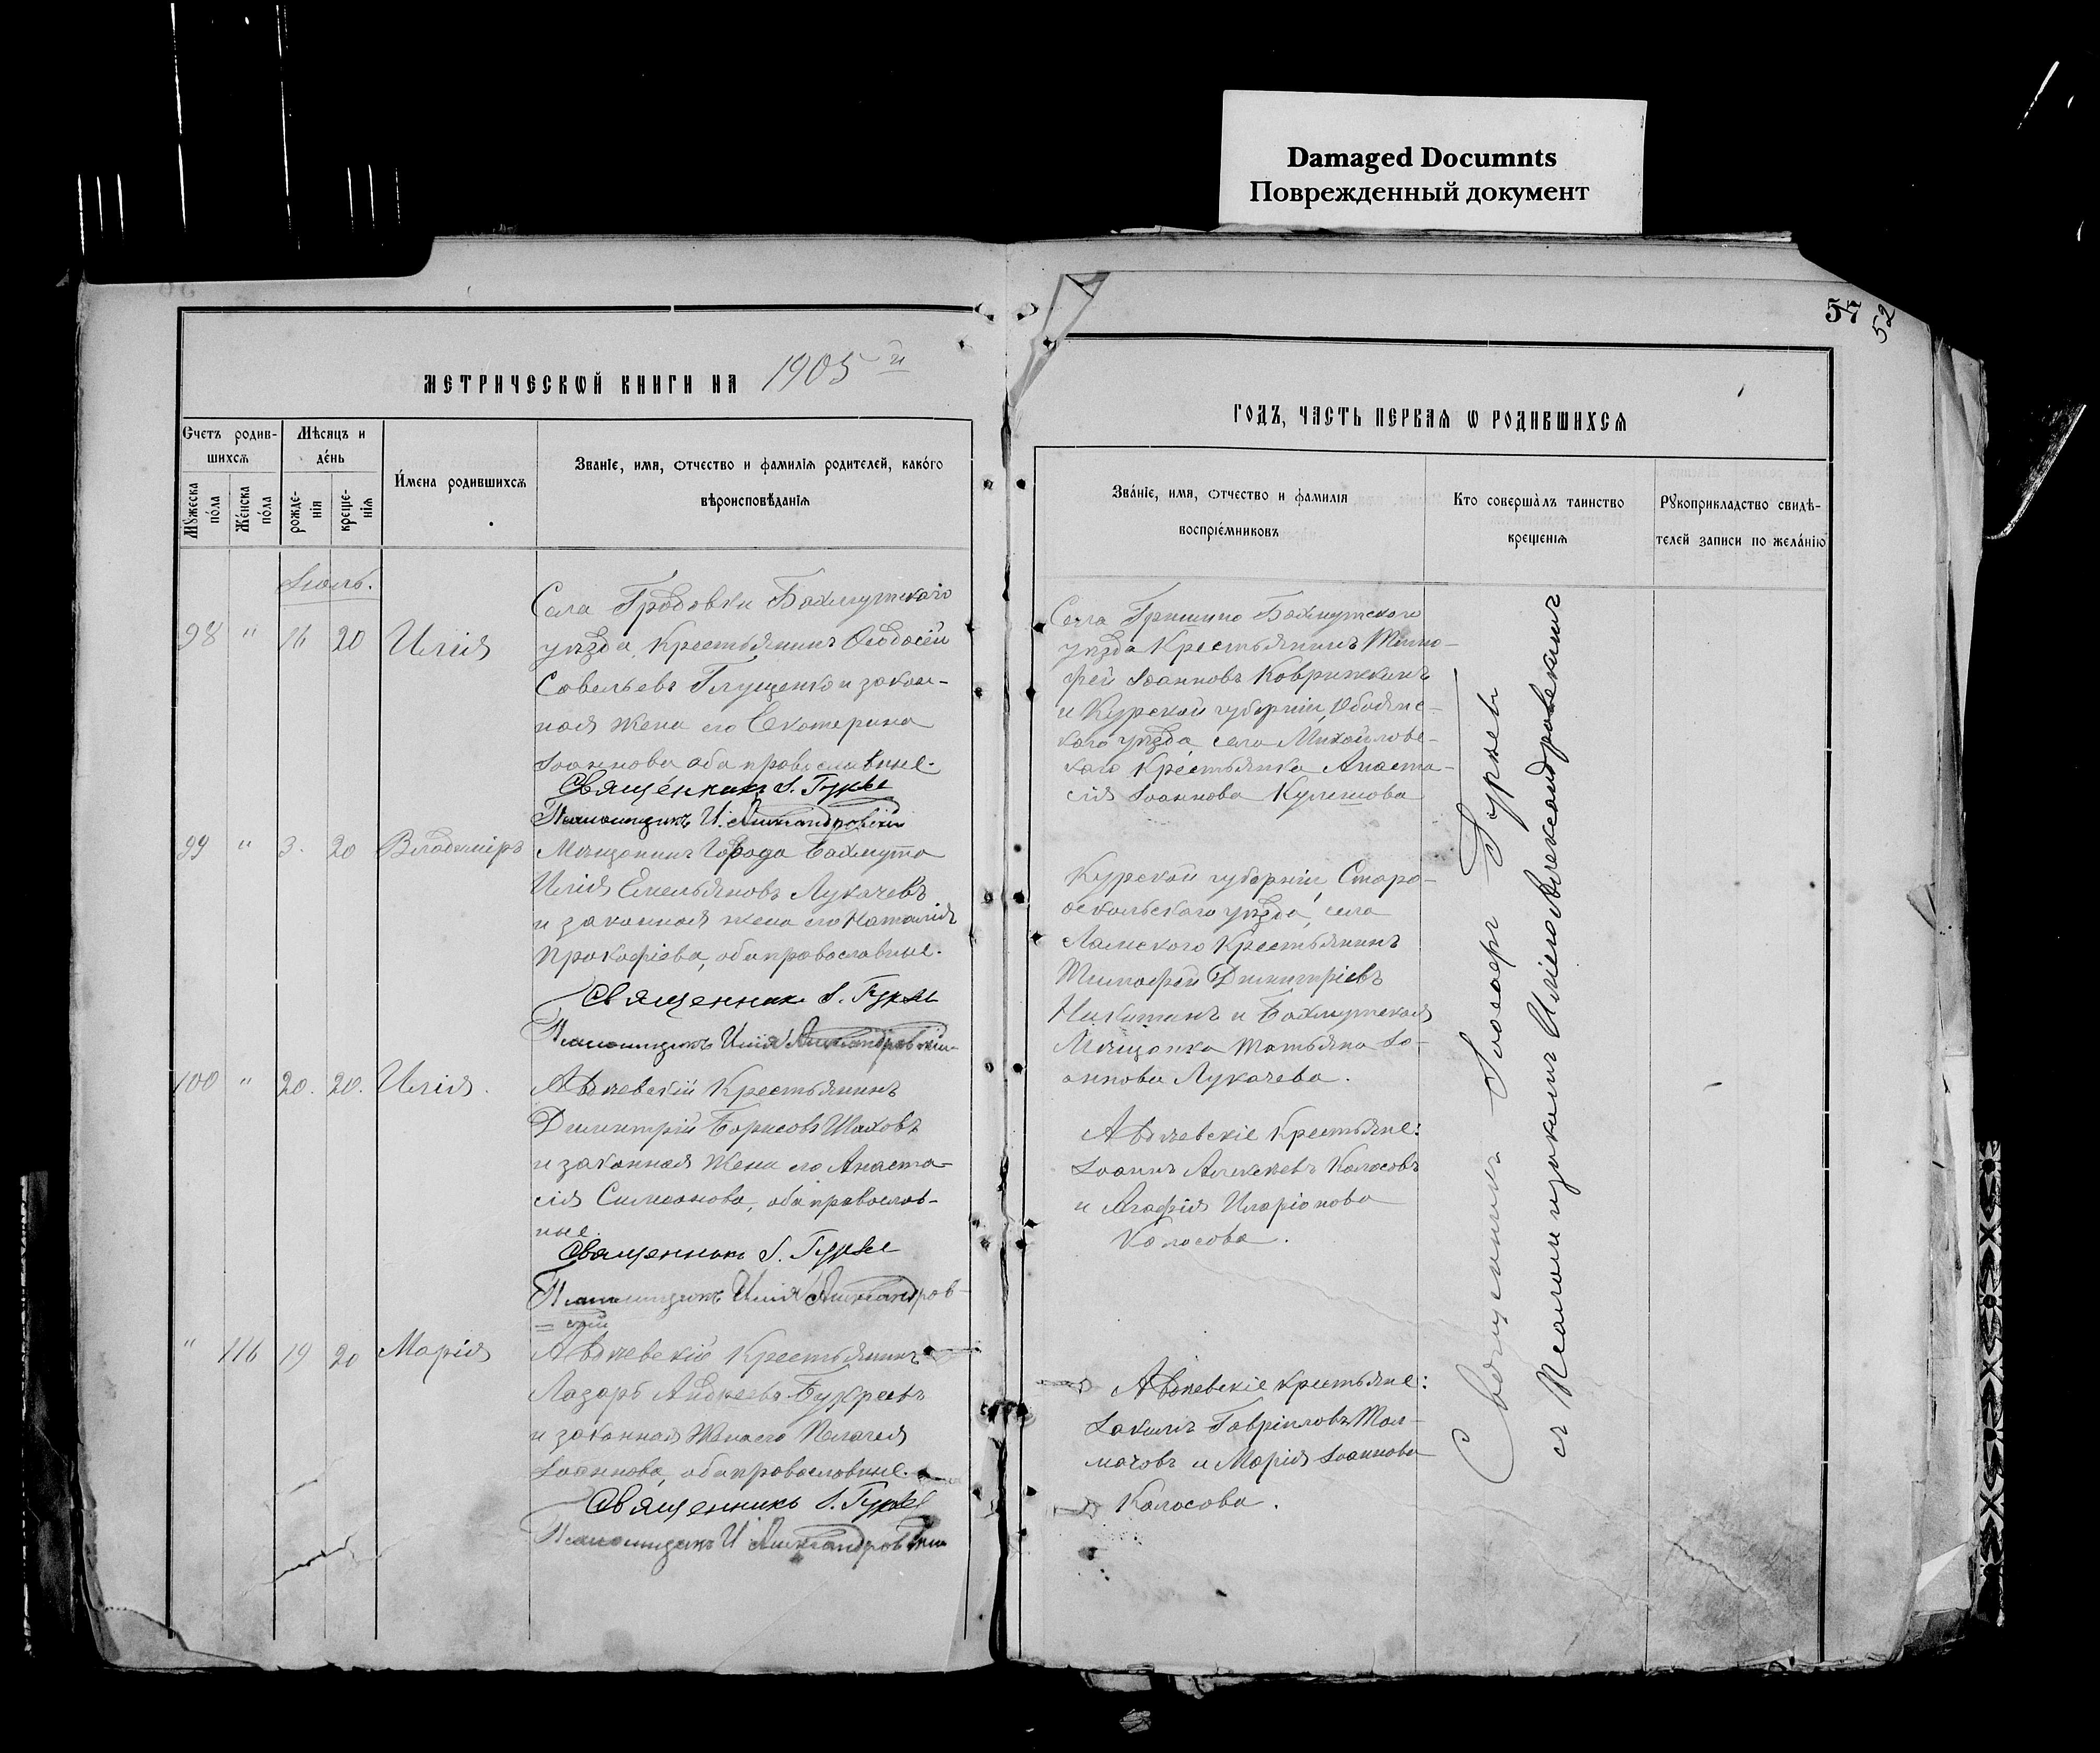 Damaged Documnts
Поврежденный документ
57
52
МЕТРИЧЕСКѠЙ КНИГИ НА 1905 й
ГОДЪ, ЧАСТЬ ПЕРВАЯ Ѡ РОДИВШИХСЯ
Счетъ родив-
шихся
Мѣсяцъ и
де́нь
Му́жеска
по́ла
Же́нска
по́ла
рожде-
нія
креще-
нія
И́мена родившихся
Званіе, имя, отчество и фамилія родителей, како́го
вѣроисповѣданія
Зва́ніе, имя, отчество и фамилія
воспріе́мниковъ
Кто соверша̀лъ таинство
крещенія
Рꙋкоприкладство свидѣ-
телей записи по жела́нію
Іюль.
98 " 16 20 Илія
Села Гродовки Бахмутскаго
уѣзда, Крестьянинъ Ѳеодосій
Савельевъ Глущенко и закон-
ная жена его Екатерина
Іоаннова оба православные.
Священникъ І. Гурьевъ
Псаломщикъ И. Александровскій
Села Гришино Бахмутскаго
уѣзда Крестьянинъ Тимо-
фей Іоанновъ Коврижкинъ
и Курской губерніи, Обоянс-
каго уѣзда, села Михайловс-
каго Крестьянка Анаста-
сія Іоаннова Кулешова
99 " 3. 20 Владиміръ
Мѣщанинъ Города Бахмута
Илія Емельяновъ Лукачевъ
и законная жена его Наталія
Прокофіева, оба православные.
Священникъ І. Гурьевъ
Псаломщикъ Илія Александровскій
Курской губерніи, Старо-
оскольскаго уѣзда, села
Ламскаго Крестьянинъ
Тимофей Димитріевъ
Никитинъ и Бахмутская
Мѣщанка Татьяна Іо-
аннова Лукачева.
100 " 20. 20. Илія.
Авдѣевскій Крестьянинъ
Димитрій Борисовъ Шаховъ
и законная жена его Анаста-
сія Симеонова, оба православ-
ные.
Священникъ І. Гурьевъ
Псаломщикъ Илія Александров-
=скій
Авдѣевскіе Крестьяне:
Іоаннъ Алексѣевъ Колосовъ
и Агафія Иларіонова
Колосова.
" 116 19 20 Марія
Авдѣевскій Крестьянинъ
Лазарь Андреевъ Букреевъ
и законная Жена его Пелагея
Іоаннова, оба православные.
Священникъ І. Гурьевъ
Псаломщикъ И Александровскій
Авдѣевскіе крестьяне:
Іакимъ Гавріиловъ Тол-
мачовъ и Марія Іоаннова
Колосова.
Священникъ Іосифъ Гурьевъ
съ Псаломщикомъ Иліею Александровскимъ